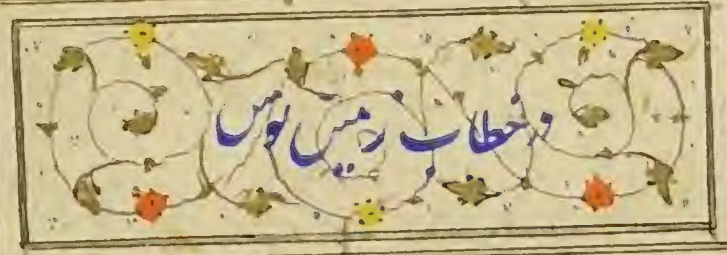 در خطاب زمین بوس